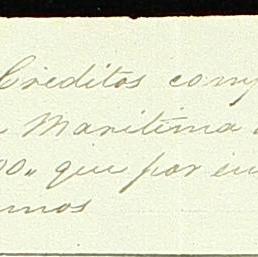 Creditos comp
Maritima
00" que por en
mos